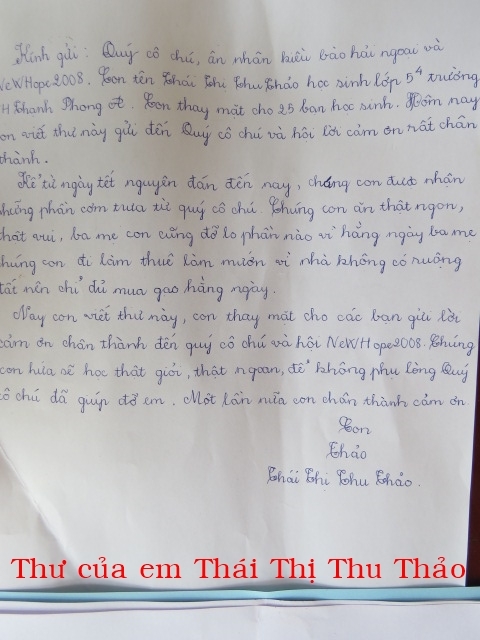 Kính gửi : Quý cô chú, ân nhân kiều bào hải ngoại và
NeWHope2008. Con tên Thái Thị Thu Thảo học sinh lớp 5⁴ trường
TH Thanh Phong A. Con thay mặt cho 25 bạn học sinh. Hôm nay
con viết thư này gửi đến Quý cô chú và hội lời cảm ơn rất chân
thành.
Kể từ ngày tết nguyên đán đến nay, chúng con được nhận
những phần cơm trưa từ quý cô chú. Chúng con ăn thật ngon,
thật vui, ba mẹ con cũng đỡ lo phần nào vì hằng ngày ba mẹ
chúng con đi làm thuê làm mướn vì nhà không có ruộng
đất nên chỉ đủ mua gạo hằng ngày.
Nay con viết thư này, con thay mặt cho các bạn gửi lời
cảm ơn chân thành đến quý cô chú và hội NeWHope2008. Chúng
con hứa sẽ học thật giỏi, thật ngoan, để không phụ lòng Quý
cô chú đã giúp đỡ em. Một lần nữa con chân thành cảm ơn
Con
Thảo
Thái Thị Thu Thảo.
Thư của em Thái Thị Thu Thảo